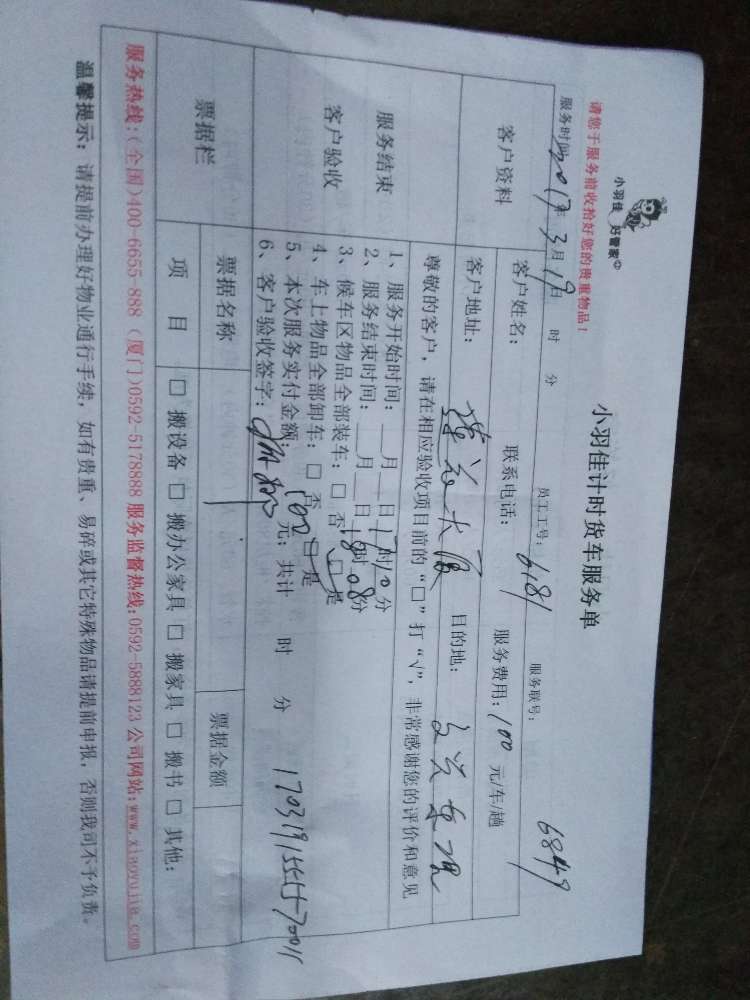 小羽佳 好管家
请您于服务前收拾好您的贵重物品！
小羽佳计时货车服务单
服务时间：2017年3月19日 时 分 员工工号：6181 服务联号：6849
客户资料
客户姓名： 联系电话： 服务费用：100元/车/趟
客户地址：莲花大厦 目的地：
尊敬的客户，请在相应验收项目前的“□”打“√”，非常感谢您的评价和意见
服务结束
客户验收
1、服务开始时间：__月__日17时10分
2、服务结束时间：__月__日18时08分
3、候车区物品全部装车：□ 否 □ 是
4、车上物品全部卸车：□ 否 □ 是
5、本次服务实付金额：100元；共计 时 分
6、客户验收签字：
票据栏
票据名称 票据金额
项 目 □ 搬设备 □ 搬办公家具 □ 搬家具 □ 搬书 □ 其他：
服务热线：(全国)400-6655-888 (厦门)0592-5178888 服务监督热线:0592-5888123 公司网站:www.xiaoyujia.com
温馨提示：请提前办理好物业通行手续，如有贵重、易碎或其它特殊物品请提前申报，否则我司不予负责。